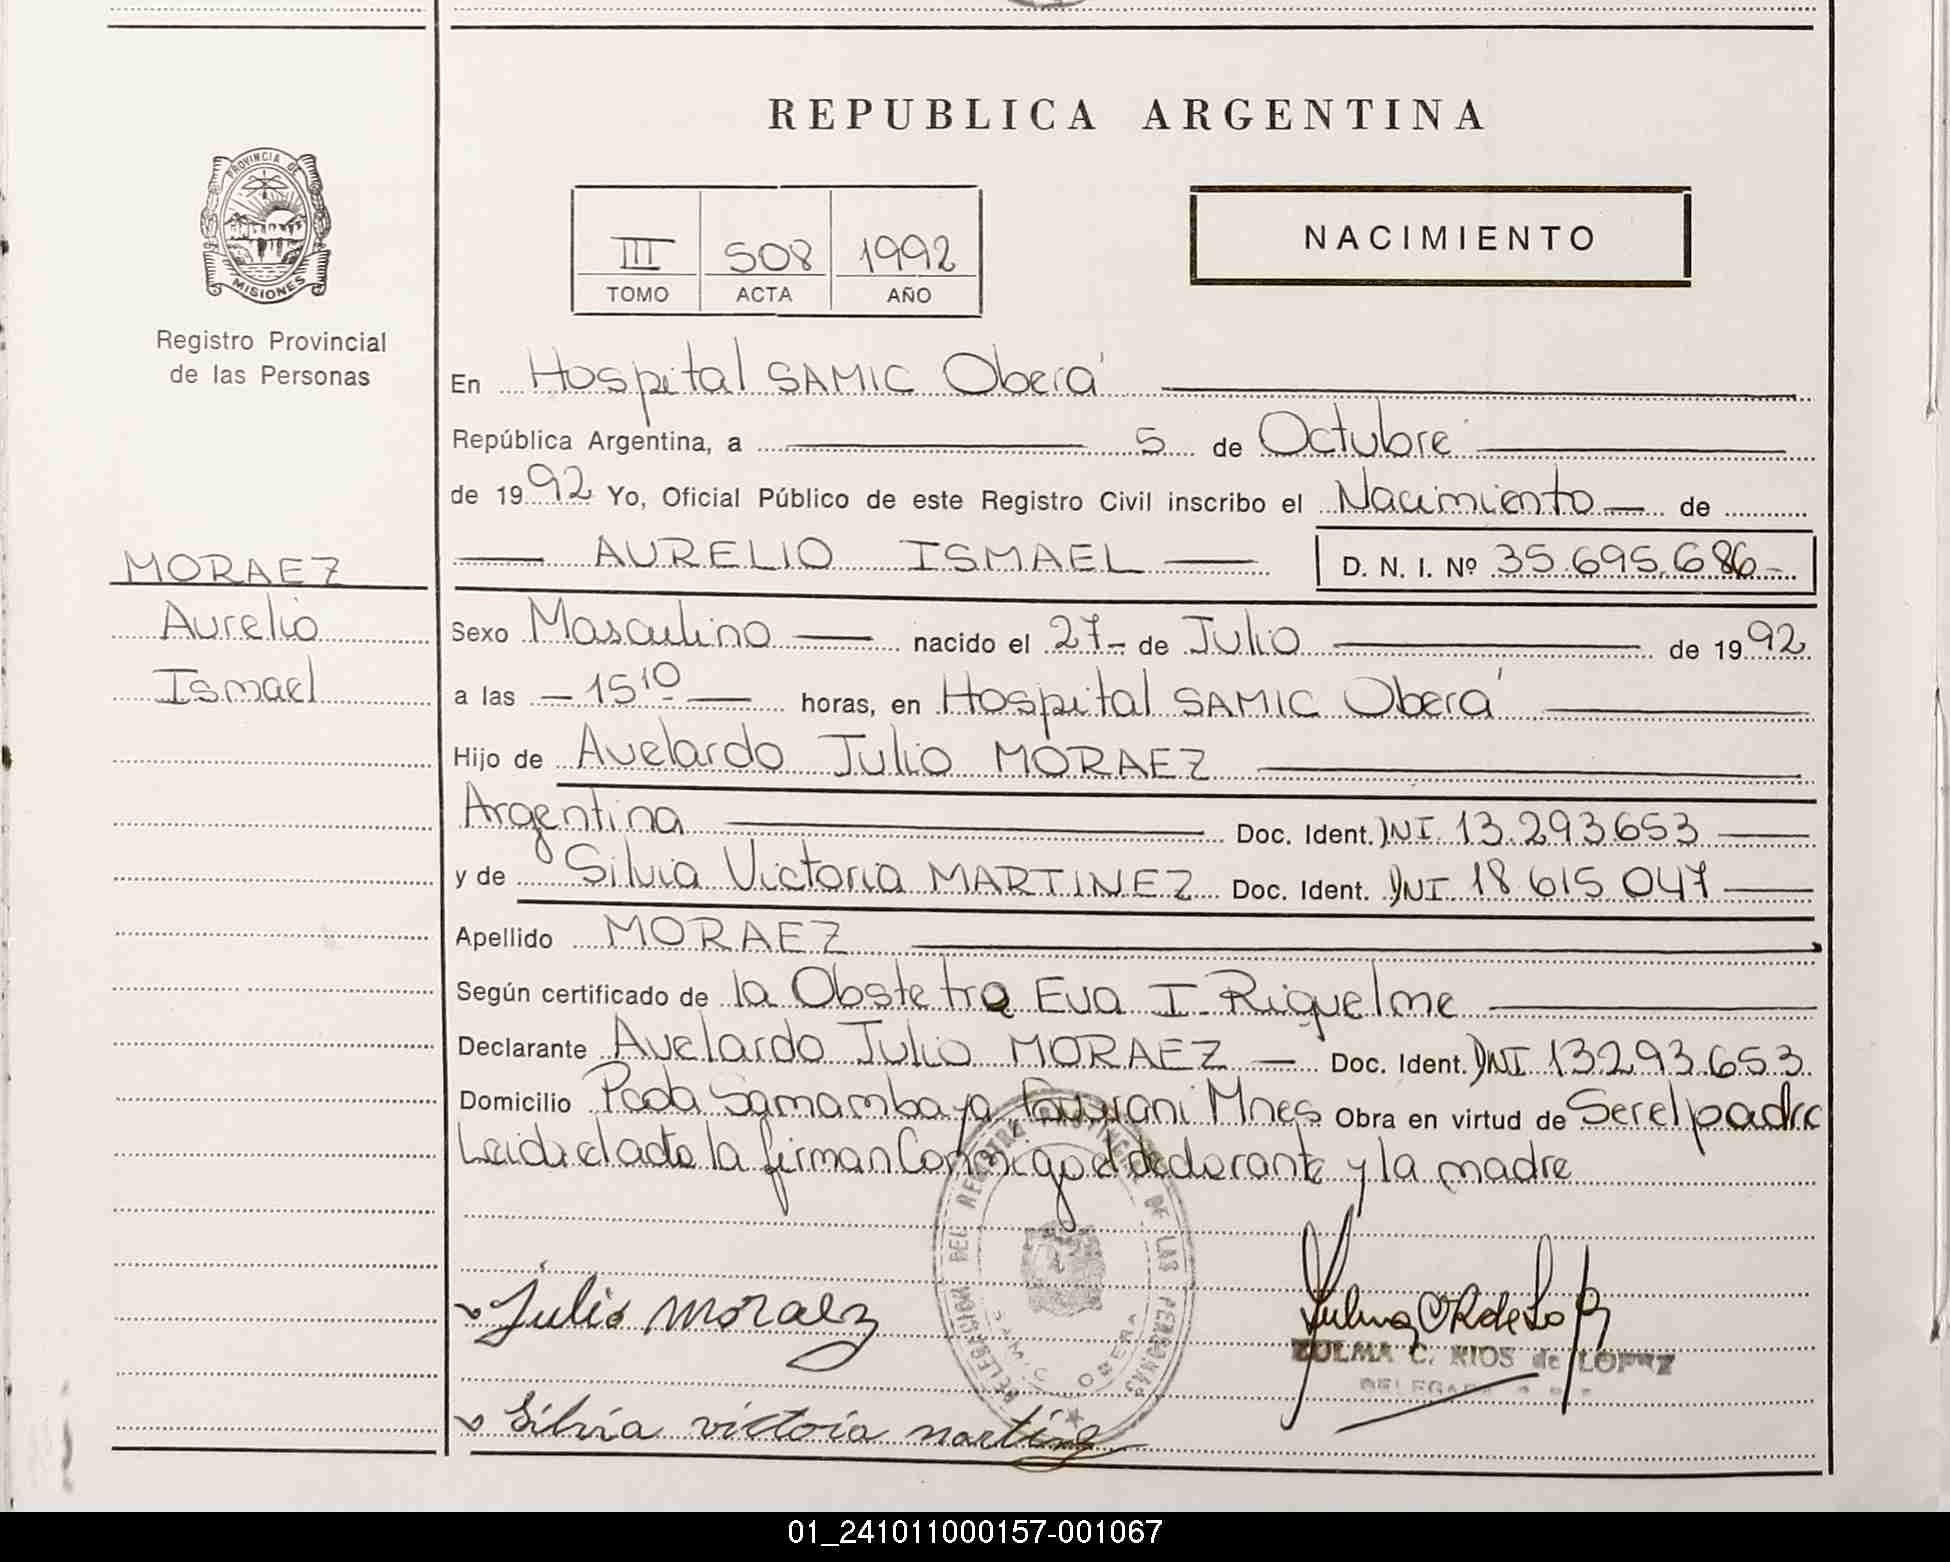 REPUBLICA ARGENTINA
PROVINCIA DE
MISIONES
Registro Provincial
de las Personas
III 508 1992
TOMO ACTA AÑO
NACIMIENTO
En Hospital SAMIC Oberá
República Argentina, a 5 de Octubre
de 1992 Yo, Oficial Público de este Registro Civil inscribo el Nacimiento de
AURELIO ISMAEL D. N. I. Nº 35.695.686
MORAEZ
Aurelio
Ismael
Sexo Masculino nacido el 27 de Julio de 1992
a las 15 10 horas, en Hospital SAMIC Oberá
Hijo de Avelardo Julio MORAEZ
Argentina Doc. Ident. DNI. 13.293.653
y de Silvia Victoria MARTINEZ Doc. Ident. DNI 18.615.047
Apellido MORAEZ
Según certificado de la Obstetra Eva I. Riquelme
Declarante Avelardo Julio MORAEZ Doc. Ident. DNI 13.293.653
Domicilio Pcda Samambaya Guarani Mnes Obra en virtud de Ser el padre
Leida el acta la firman Conmigo el declarante y la madre
DELEGACION DEL REGISTRO PROVINCIAL DE LAS PERSONAS
SAMIC OBERA
Julio Moraez
Zulma C R de Lopez
ZULMA C. RIOS de LOPEZ
Silvia victoria martinez
01_241011000157-001067